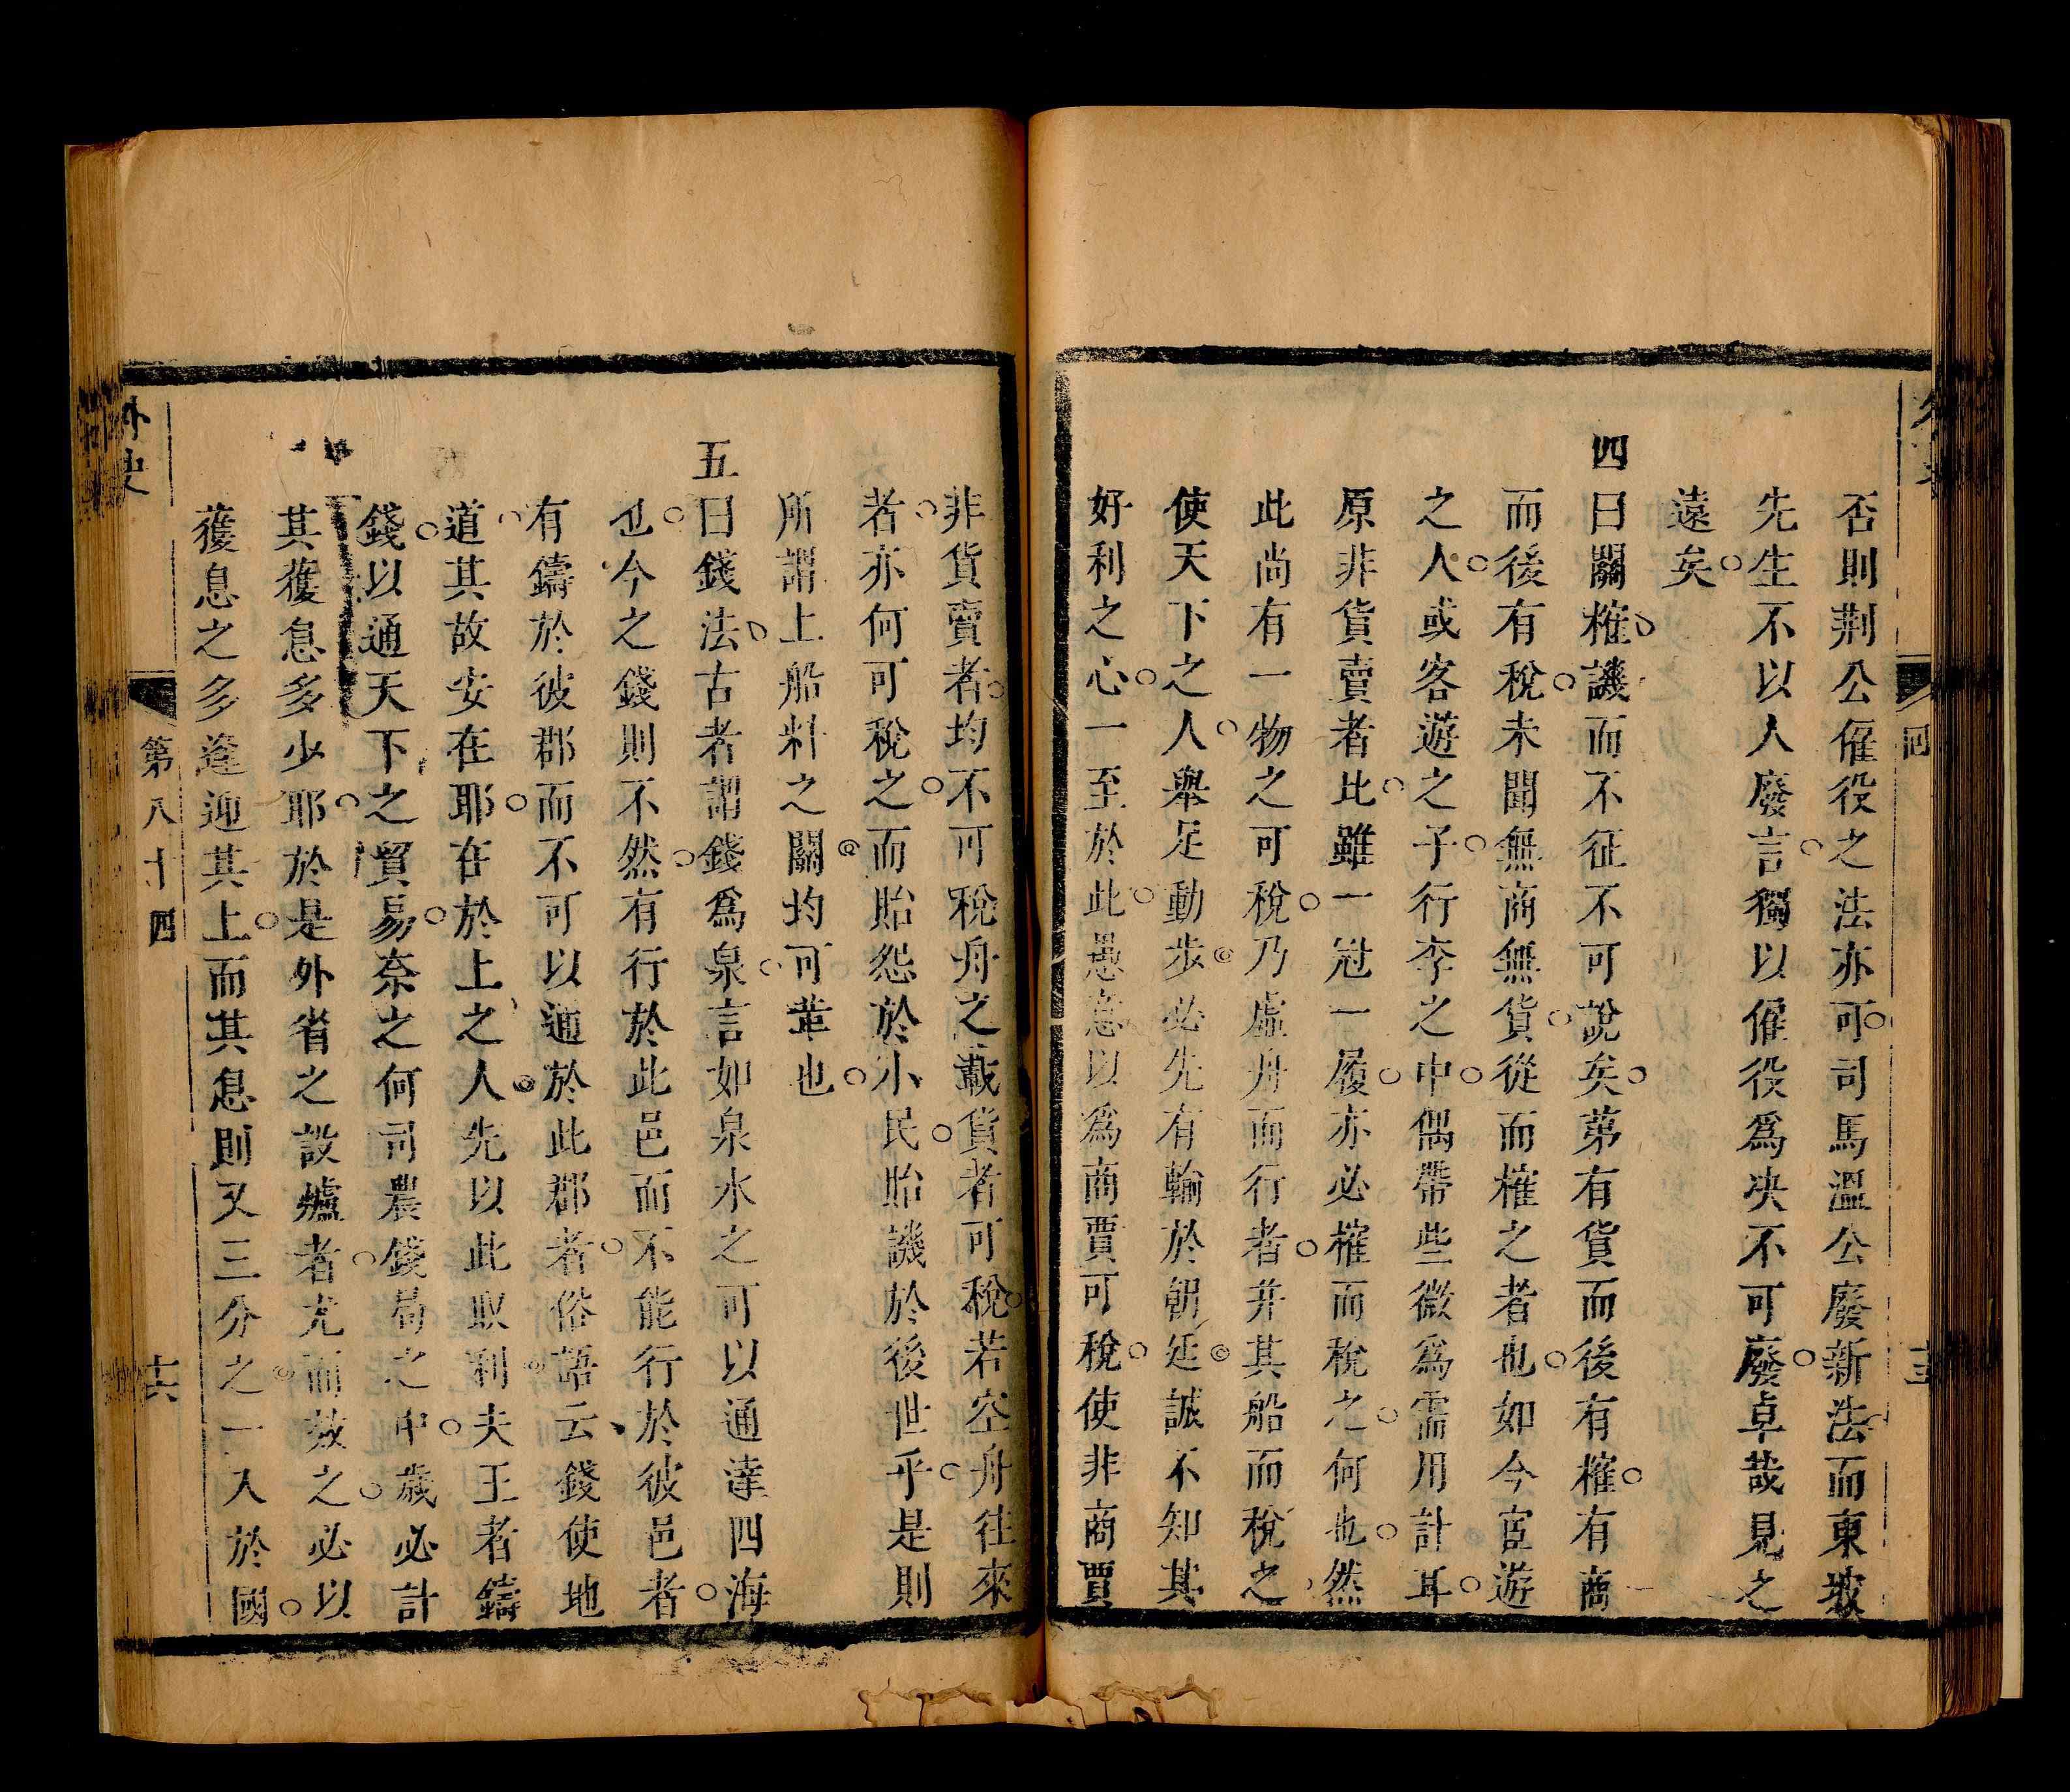 否則荆公僱役之法亦可司馬溫公廢新法而東坡
先生不以人廢言獨以僱役爲决不可廢卓哉見之
遠矣
四曰關榷譏而不征不可說矣苐有貨而後有榷有商
而後有稅未聞無商無貨從而榷之者也如今宦遊
之人或客遊之子行李之中偶帶些微爲需用計耳
原非貨賣者比雖一冠一履亦必榷而稅之何也然
此尚有一物之可稅乃虛舟而行者并其船而稅之
使天下之人舉足動步必先有輸於朝廷誠不知其
好利之心一至於此愚意以爲商賈可稅使非商賈
非貨賣者均不可稅舟之載貨者可稅若空舟往來
者亦何可稅之而貽怨於小民貽譏於後世乎是則
所謂上船料之關均可革也
五曰錢法古者謂錢爲泉言如泉水之可以通達四海
也今之錢則不然有行於此邑而不能行於彼邑者
有鑄於彼郡而不可以通於此郡者俗語云錢使地
道其故安在耶在於上之人先以此取利夫王者鑄
錢以通天下之貿易奈之何司農錢局之中歲必計
其獲息多少耶於是外省之設爐者尤而效之必以
獲息之多逢迎其上而其息則又三分之一入於國
外史
第八十四
十六